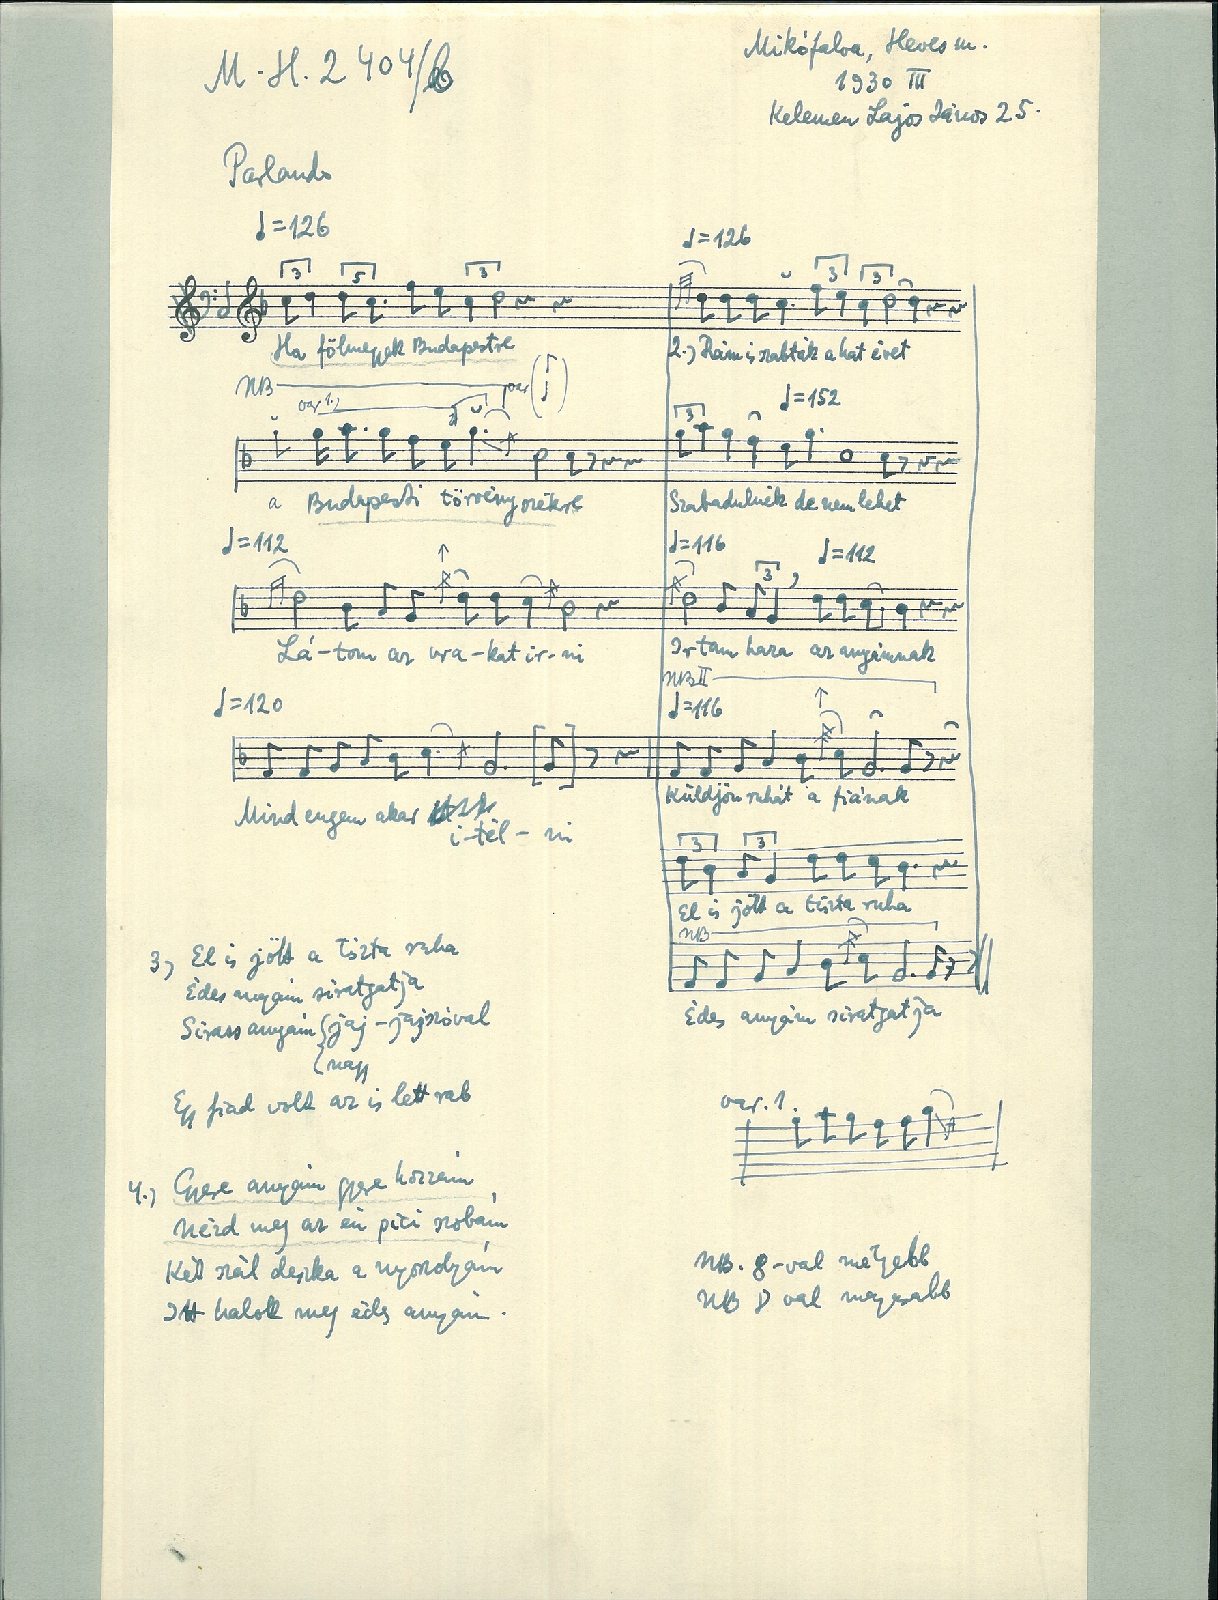 M.-H. 2404/b
Mikófalva, Heves m.
1930 III
Kelemen Lajos János 25.
Parlando
♩=126
♩=126
3 5 3
3 3
Ha fölmegyek Budapestre
2.) Rám is szabták a hat évet
NB
var 1.)
var
♩=152
3
a Budapesti törvényszékre
Szabadulnék de nem lehet
♩=112
♩=116
♩=112
3
Lá-tom az ura-kat ír-ni
Irtam haza az anyámnak
NB II
♩=120
♩=116
Mind engem akar
i-tél-ni
Küldjön ruhát a fiának
3 3
El is jött a tiszta ruha
NB
Édes anyám siratgatja
3) El is jött a tiszta ruha
Édes anyám siratgatja
Sirass anyám {jaj-jajszóval
{nagy
Egy fiad volt az is lett rab
var. 1.
4.) Gyere anyám gyere hozzám
Nézd meg az én pici szobám
Két szál deszka a nyoszolyám
Itt halok meg édes anyám.
NB. 8-val mélyebb
NB 8 val magasabb